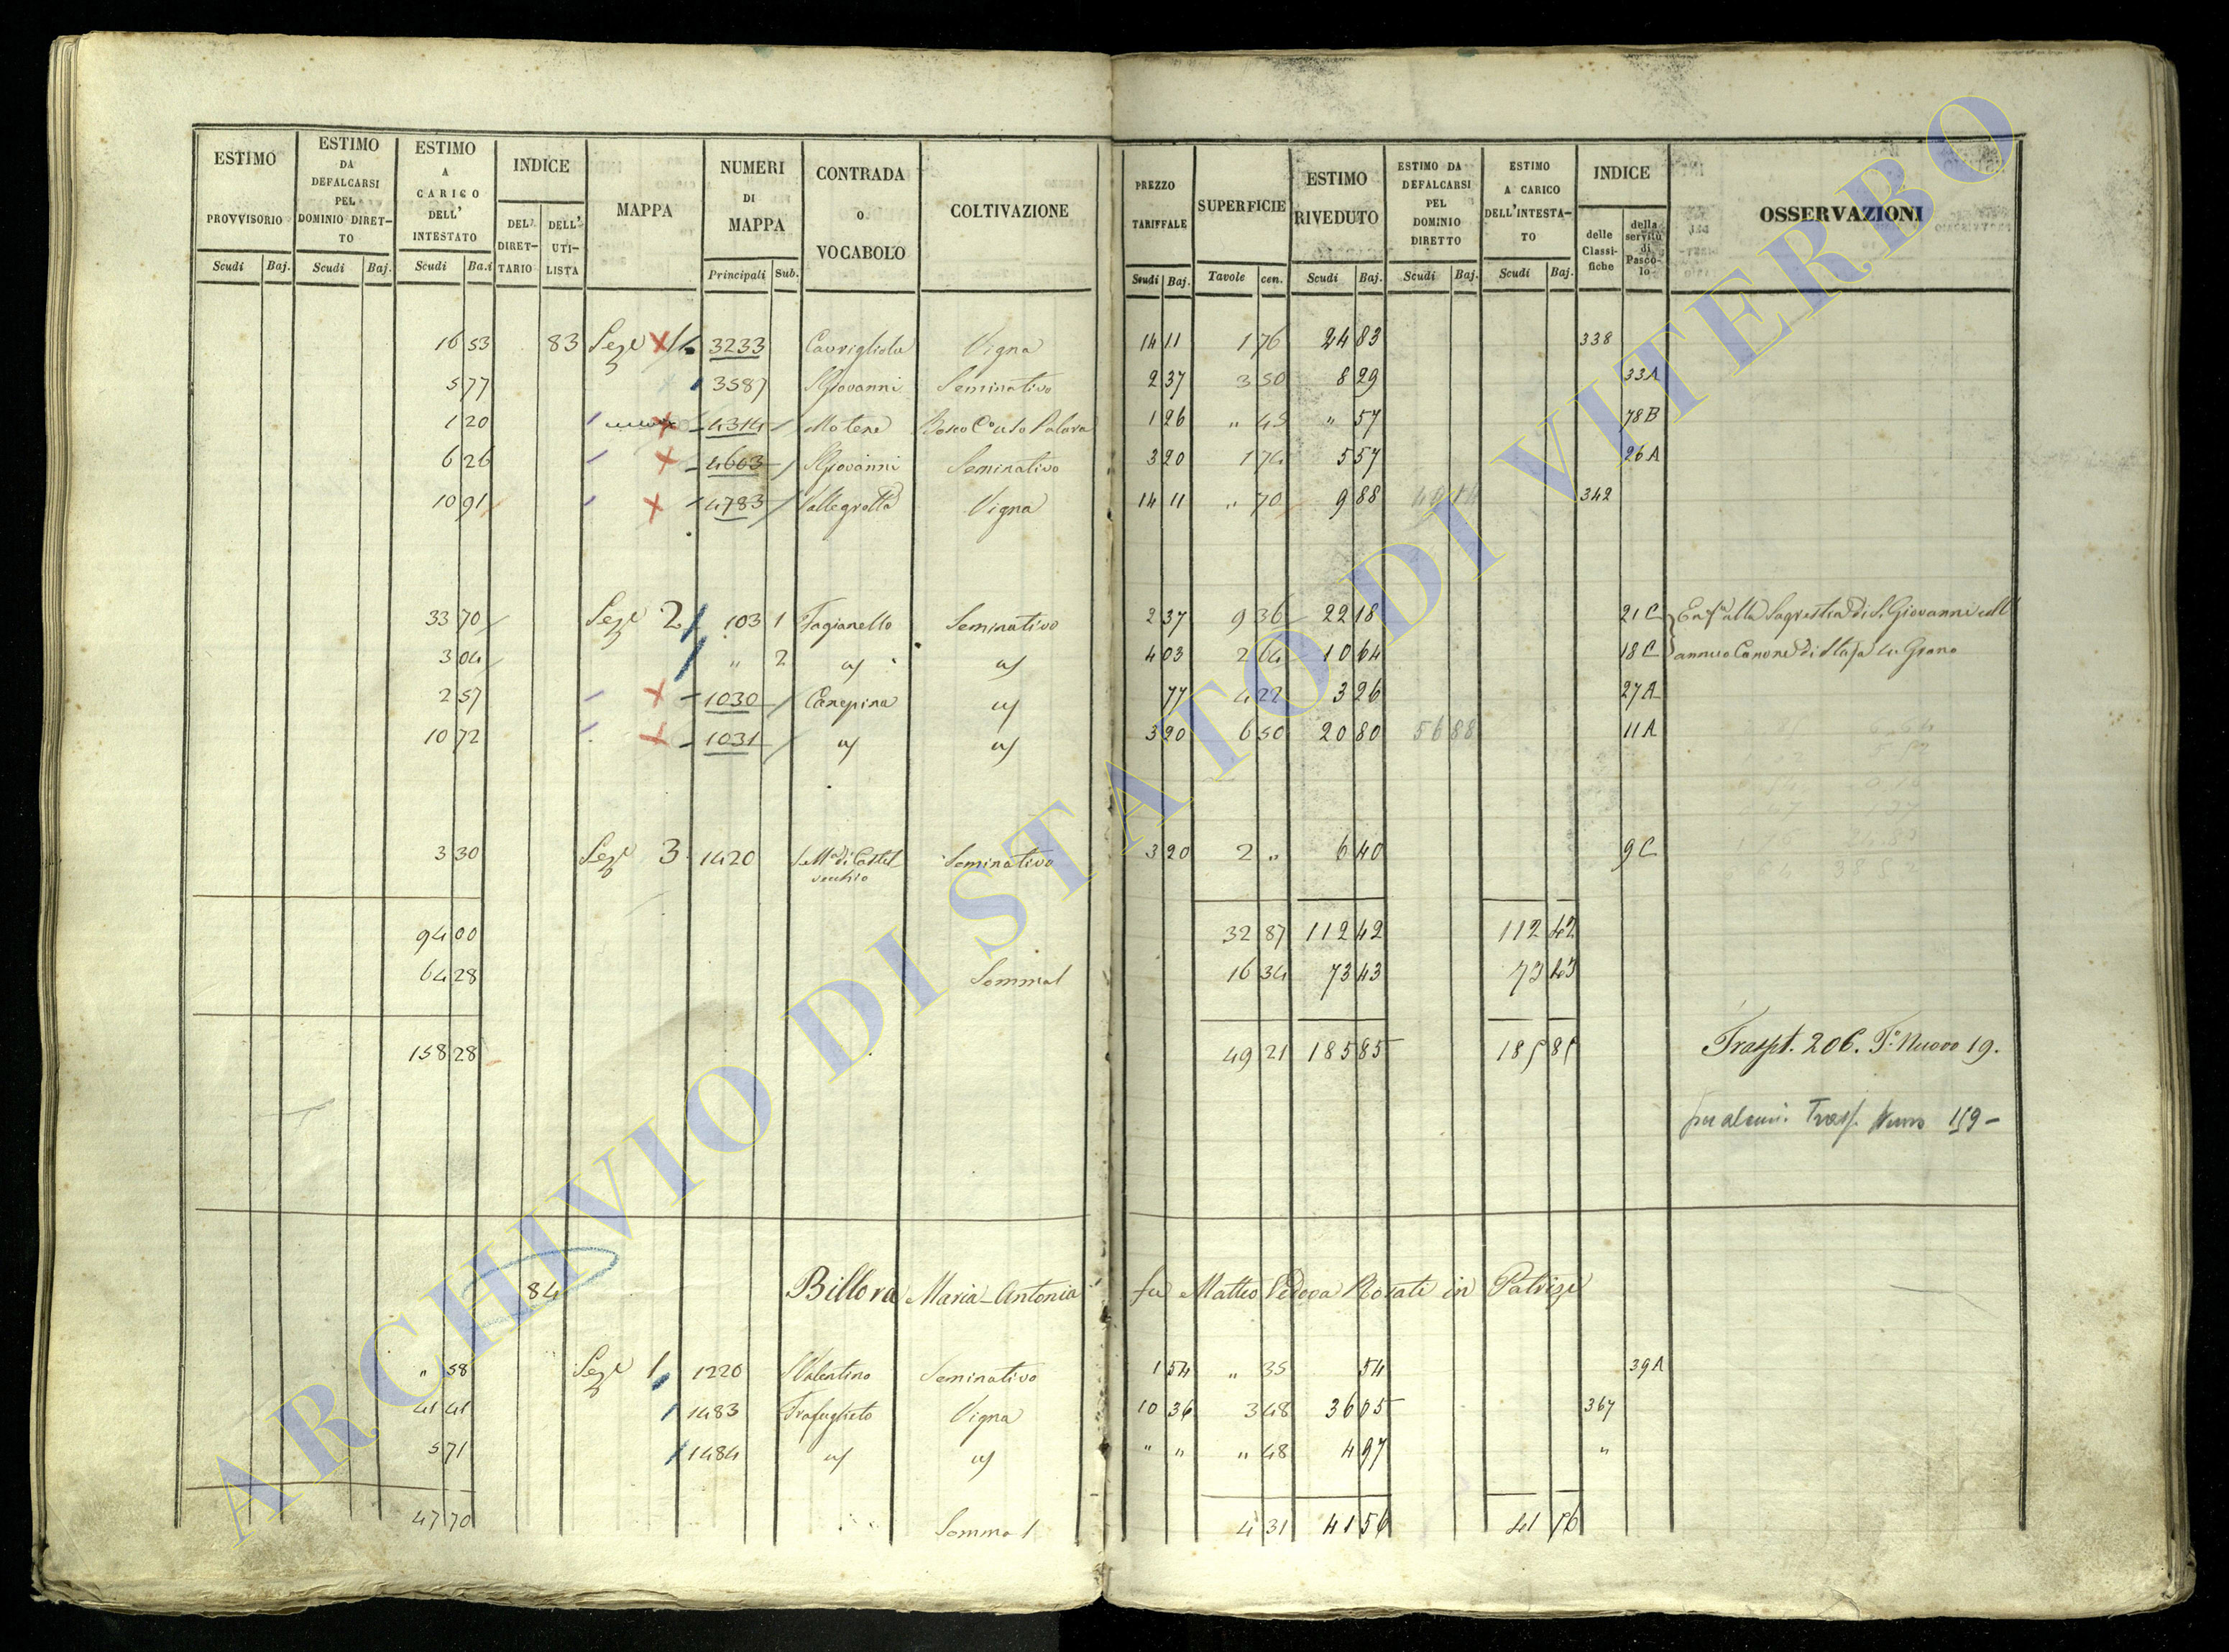 ESTIMO PROVVISORIO Scudi Baj.
ESTIMO DA DEFALCARSI PEL DOMINIO DIRETTO Scudi Baj.
ESTIMO A CARICO DELL' INTESTATO Scudi Ba.i
INDICE DEL DIRETTARIO DELL' UTILISTA
MAPPA
NUMERI DI MAPPA Principali Sub.
CONTRADA O VOCABOLO
COLTIVAZIONE
PREZZO TARIFFALE Scudi Baj.
SUPERFICIE Tavole cen.
ESTIMO RIVEDUTO Scudi Baj.
ESTIMO DA DEFALCARSI PEL DOMINIO DIRETTO Scudi Baj.
ESTIMO A CARICO DELL'INTESTATO Scudi Baj.
INDICE delle Classifiche della servitù di Pascolo
OSSERVAZIONI
16 53 83 Sez.e 1 3233 Vigna 14 11 1 76 24 83 338
5 77 3587 S Giovanni Seminativo 2 37 3 50 8 29 33A
1 20 4314 Bosco C. uso Palara 1 26 " 45 " 57 78B
6 26 4603 S Giovanni Seminativo 3 20 1 74 5 57 26A
10 91 4783 Vallegrotta Vigna 14 11 " 70 9 88 342
33 70 Sez.e 2 103 1 Fagianello Seminativo 2 37 9 36 22 18 21C alla Sagrestia di S. Giovanni coll'
3 04 " 2 4 03 2 64 10 64 18C annuo Canone di Grano
2 57 1030 Canepina 77 4 22 3 26 27A
10 72 1031 3 20 6 50 20 80 56 88 11A
3 30 Sez.e 3 1420 S. M.a di Castelvecchio Seminativo 3 20 2 " 6 40 9C
94 00 32 87 112 42 112 42
64 28 Somma 16 34 73 43 73 43
158 28 49 21 185 85 185 85 Traspt. 206. T.o Nuovo 19.
159 -
84 Billora Maria-Antonia fu Matteo Vedova Rosati in Patrizi
" 58 Sez.e 1 1220 S Valentino Seminativo 1 54 " 35 54 39A
41 41 1483 Vigna 10 36 3 48 36 05 367
5 71 1484 " " " 48 4 97 "
47 70 Somma 4 31 41 56 41 56
ARCHIVIO DI STATO DI VITERBO